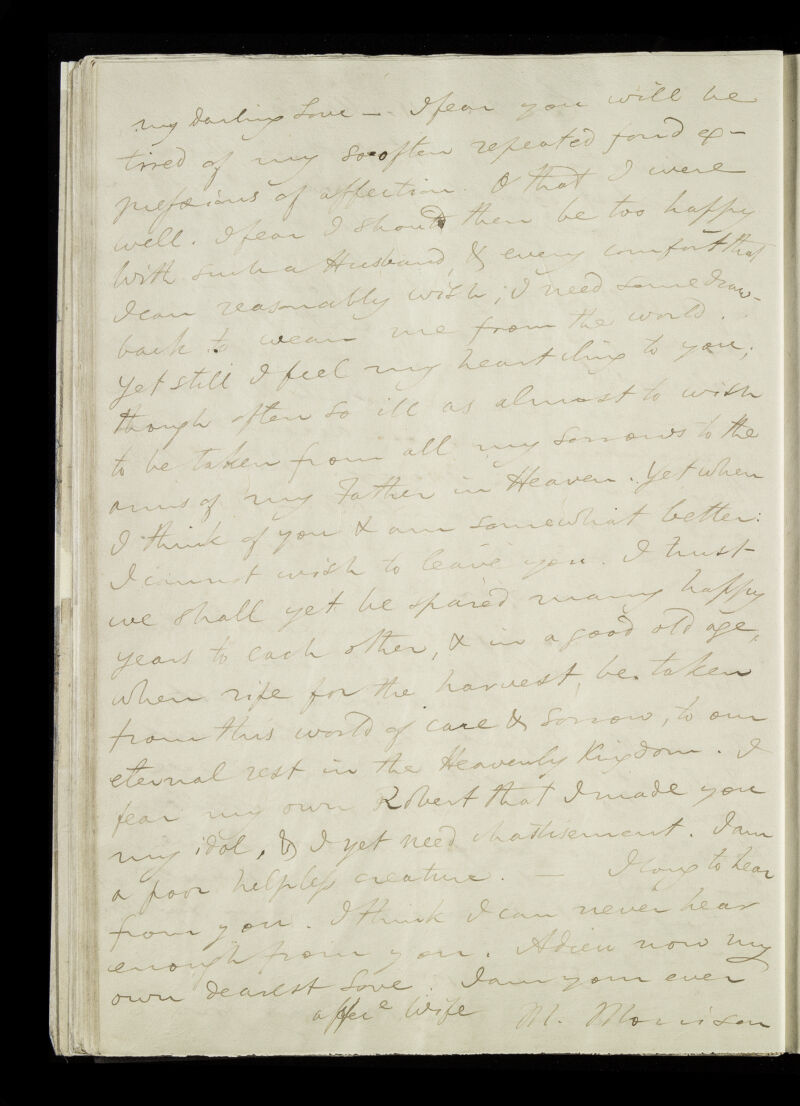 my Darling Love — I fear you will be
tired of my so often repeated fond ex-
pressions of affection. O that I were
well. I fear I should then be too happy
with such a Husband, & every comfort that
I can reasonably wish; I need some draw-
back to wean me from the world.
Yet still I feel my heart cling to you;
though often so ill as almost to wish
to be taken from all my sorrows to the
arms of my Father in Heaven. Yet when
I think of you & am somewhat better:
I cannot wish to leave you. I trust
we shall yet be spared many happy
years to each other, & in a good old age,
when ripe for the harvest, be taken
from this world of care & sorrow, to our
eternal rest in the Heavenly Kingdom. I
fear my own Robert that I made you
my idol, & I yet need chastisement. I am
a poor helpless creature. — I long to hear
from you. I think I can never hear
enough from you. Adieu now my
own dearest Love. I am your ever
affece Wife M. Morrison